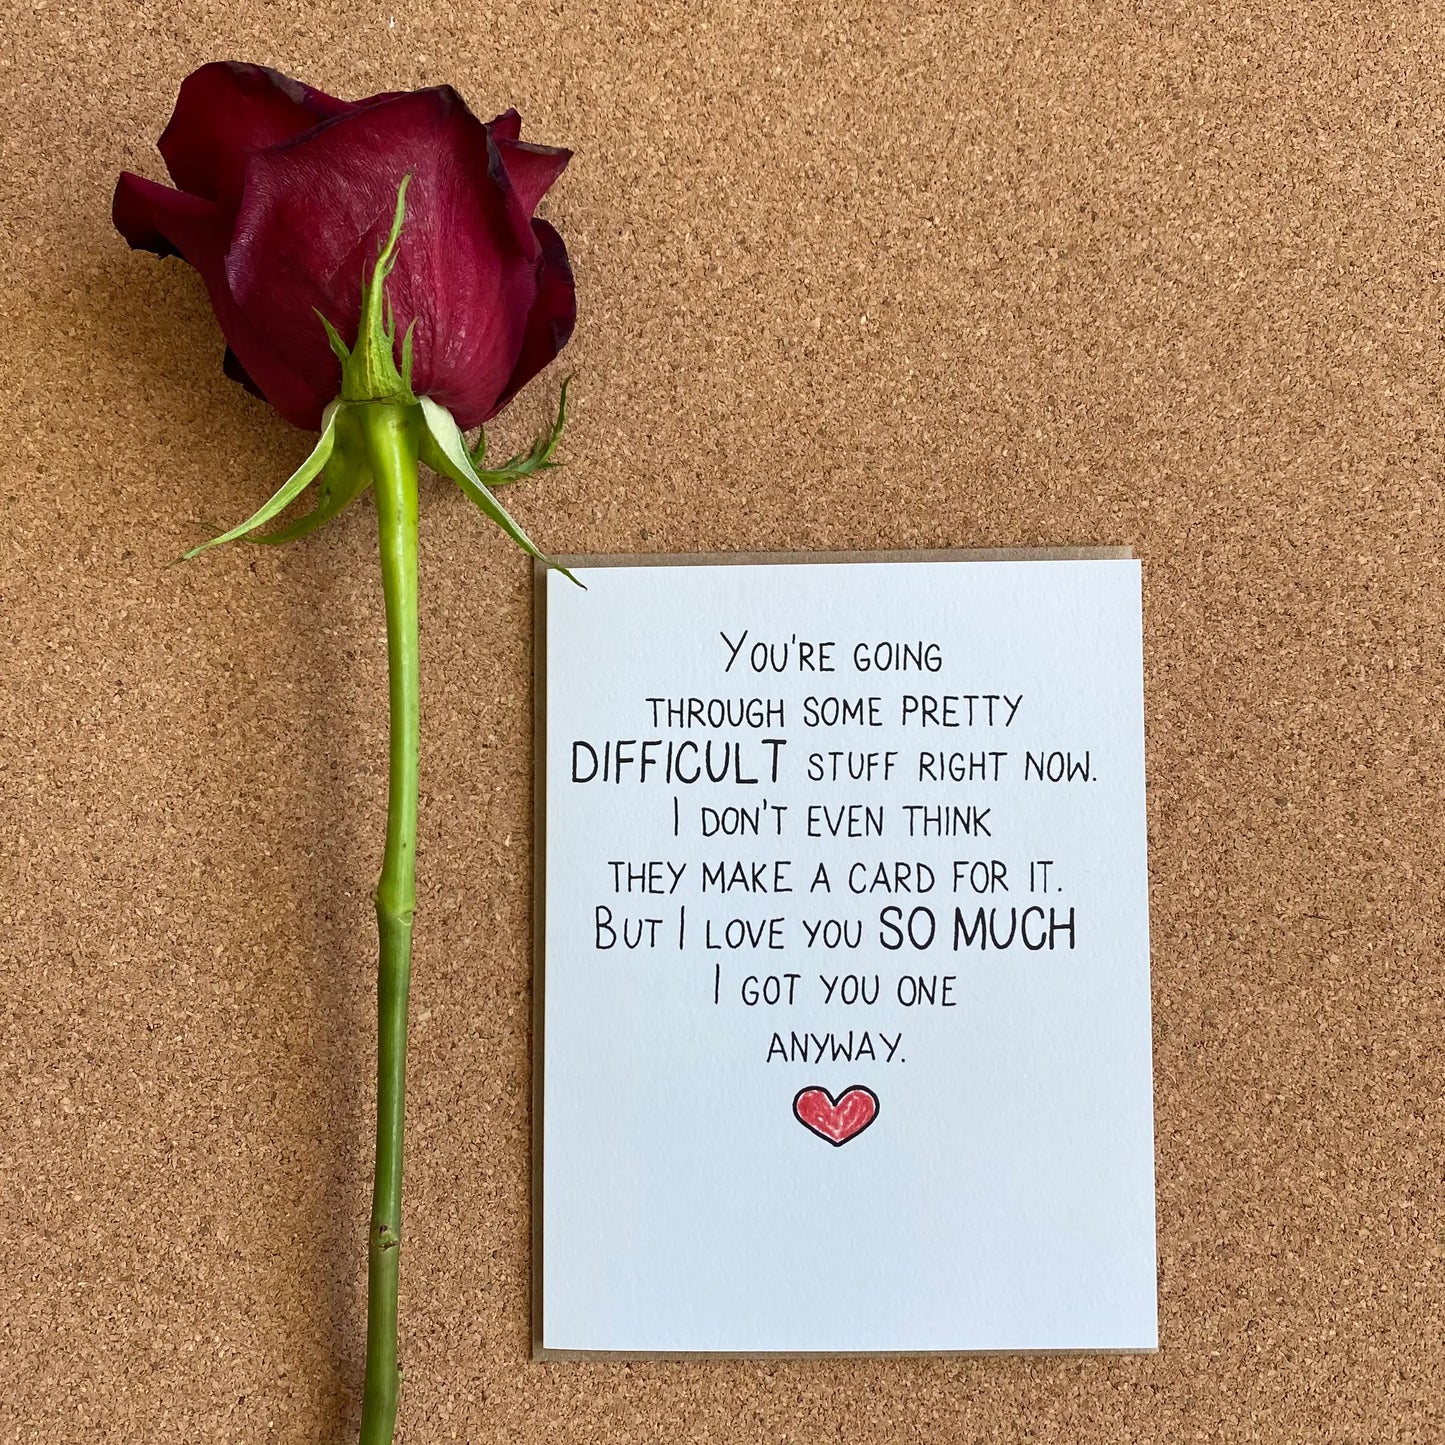 YOU'RE GOING
THROUGH SOME PRETTY
DIFFICULT STUFF RIGHT NOW.
I DON'T EVEN THINK
THEY MAKE A CARD FOR IT.
BUT I LOVE YOU SO MUCH
I GOT YOU ONE
ANYWAY.